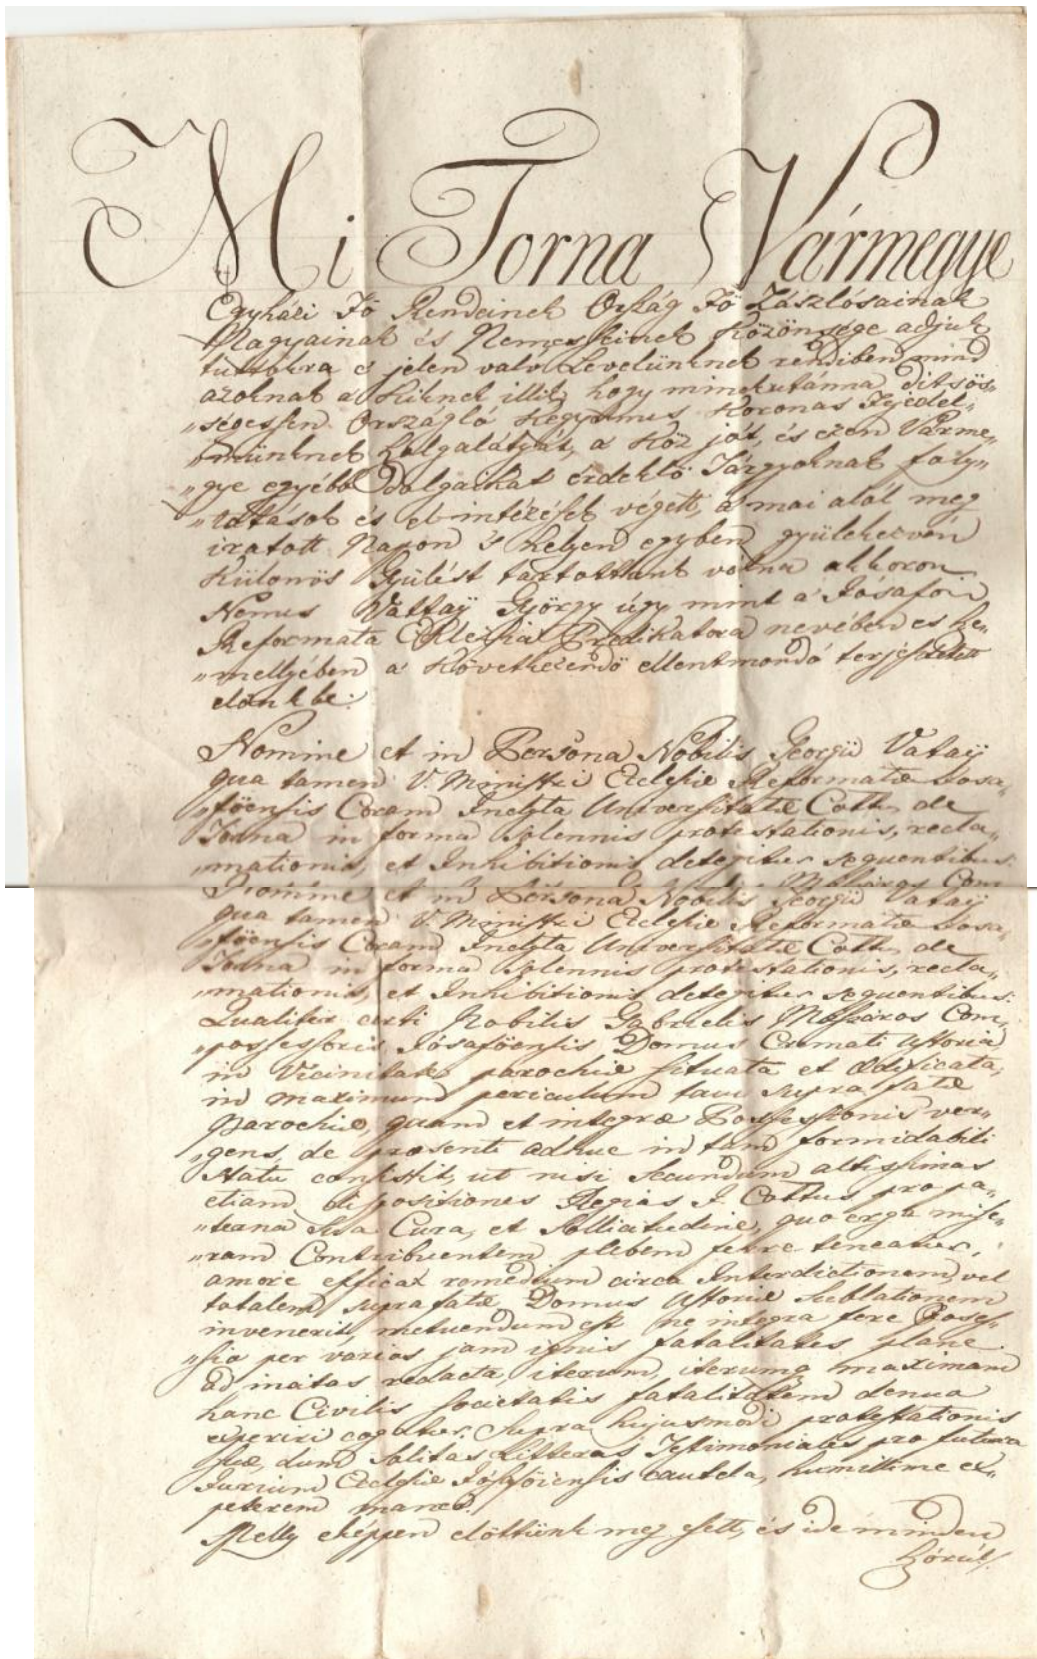 Mi Torna Vármegye
Egyházi Fő Rendeinek Ország Fő Zászlósainak
Nagyainak és Nemesseinek Közönsége adjuk
tudtokra e jelen való Levelünknek rendiben mind
azoknak a' kiknek illik, hogy minekutánna ditsös„
„ségessen Országló Kegyelmes Koronás Fejedel„
„münknek szolgálatyát, a Köz jót, és ezen Várme„
„gye egyébb dolgaikat érdeklö Tárgyoknak foly„
„tatások és el intézések végett, a' mai alól meg
iratott Napon és helyen egyben gyülekezvén
Különös Gyülést tartottunk vólna akkoron
Nemes Vattaÿ György úgy mint a' Jósaföi
Reformata Eklésia Prédikátora nevében es sze„
„mellyében a' Következendö ellentmondó terjesztetett
elönkbe.
Nomine et in Persona Nobilis Georgii Vataÿ
qua tamen V. Ministri Eclesie Reformatæ Josa„
„föensis Coram Inclyta Universitate Cottus de
Torna in forma solennis protestationis, recla„
„mationis, et Inhibitionis detegitur sequentibus:
Nomine et in Persona Nobilis Georgii Vataÿ
qua tamen V. Ministri Eclesie Reformatæ Josa„
„föensis Coram Inclyta Universitate Cottus de
Torna in forma solennis protestationis, recla„
„mationis, et Inhibitionis detegitur sequentibus:
Qualiter certi Nobilis Gabrielis Mészáros Com„
„possessoris Jósaföensis Domus Cremati Ustoria
in Vicinitate parochie situata et ædificata,
in maximum periculum tam supra fatæ
Parochie, quam et integræ Possessionis ver„
„gens, de præsenti adhuc in tam formidabili
Statu consistit, ut nisi secundum altissimas
etiam dispositiones Regias I. Cottus pro pa„
„terna sua Cura, et Sollicitudine, quo erga mise„
„ram Contribuentem plebem ferre teneatur,
amore efficax remedium circa Interdictionem vel
totalem suprafatæ Domus Ustorie Sublationem
invenerit, metuendum est ne integra fere Posses„
„sio per varias jam ignis fatalitates plane
ad incitas redacta, iterum, iterumq maximam
hanc Civilis societatis fatalitatem denuo
experiri cogatur. Supra hujusmodi protestationis
suæ, dum solitas Litteras Testimoniales pro futura
Jurium Eclesie Jósaföiensis cautela, humillime ex„
peterem maneo.
Melly eképpen elöttünk meg esett, és ide minden
szórúl/